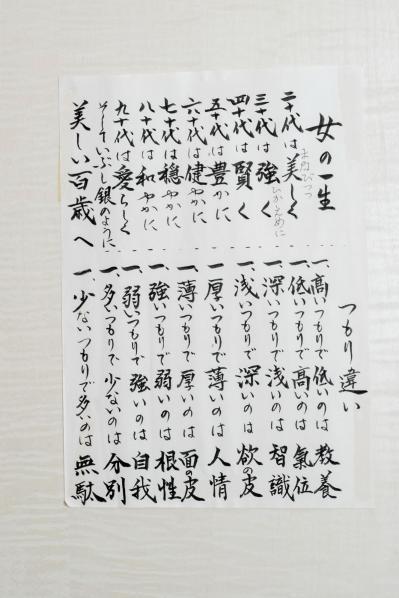 女の一生
二十代は美しく
三十代は強く
四十代は賢く
五十代は豊かに
六十代は健やかに
七十代は穏やかに
八十代は和やかに
九十代は愛らしく
そしていぶし銀のように
美しい百歳へ
つもり違い
一、高いつもりで低いのは教養
一、低いつもりで高いのは氣位
一、深いつもりで浅いのは智識
一、浅いつもりで深いのは欲の皮
一、厚いつもりで薄いのは人情
一、薄いつもりで厚いのは面の皮
一、強いつもりで弱いのは根性
一、弱いつもりで強いのは自我
一、多いつもりで少ないのは分別
一、少ないつもりで多いのは無駄